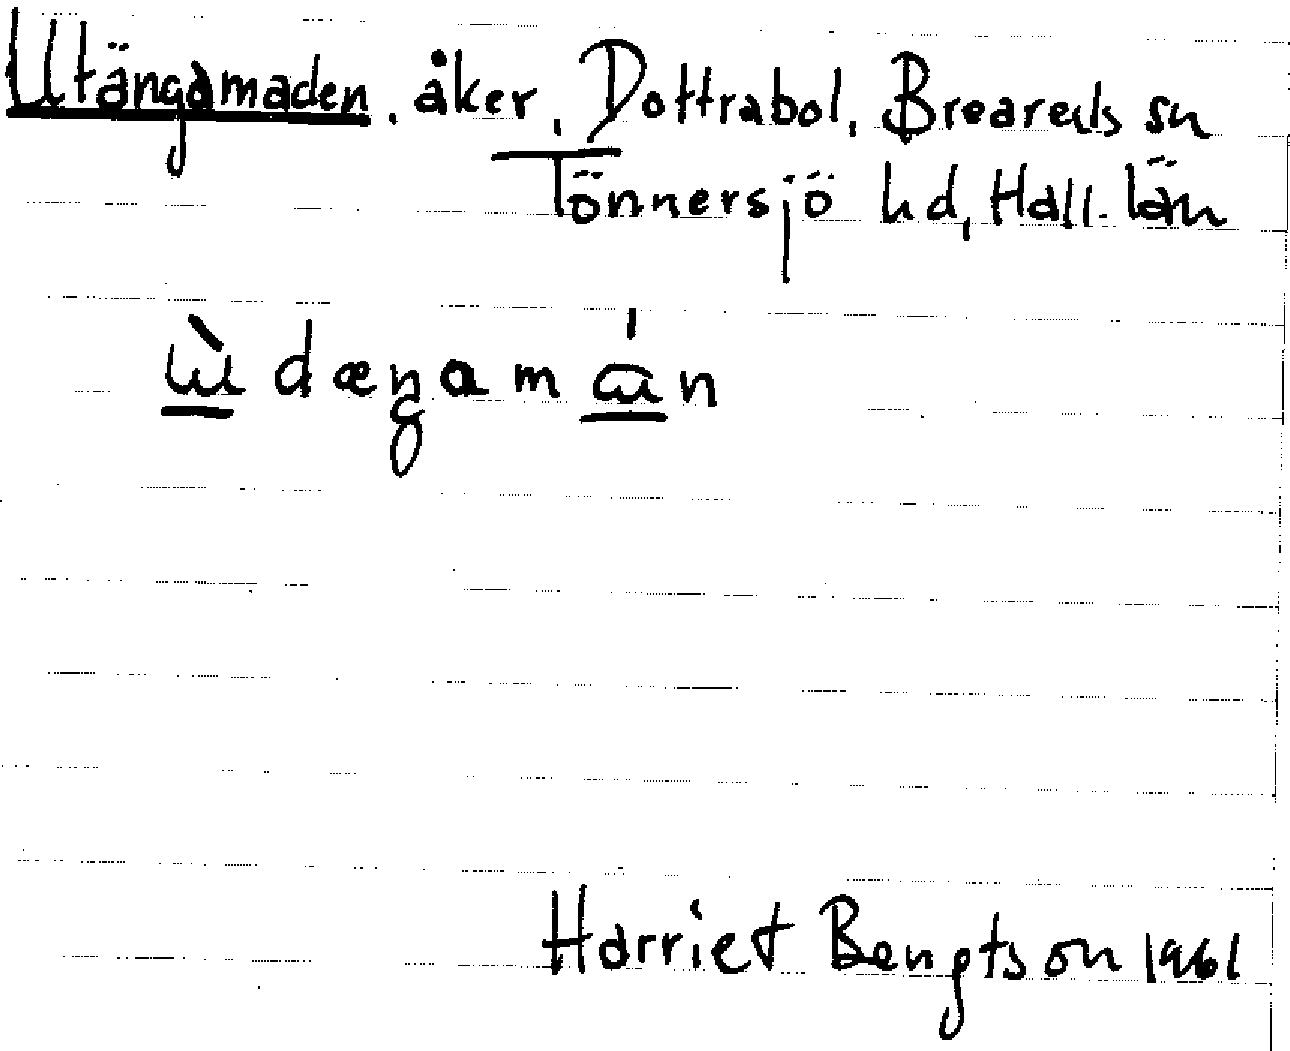 Utängamaden. åker, Dottrabol, Breareds sn
Tönnersjö hd, Hall. län
ɯ̀dæŋamɑ́n
Harriet Bengtson 1961